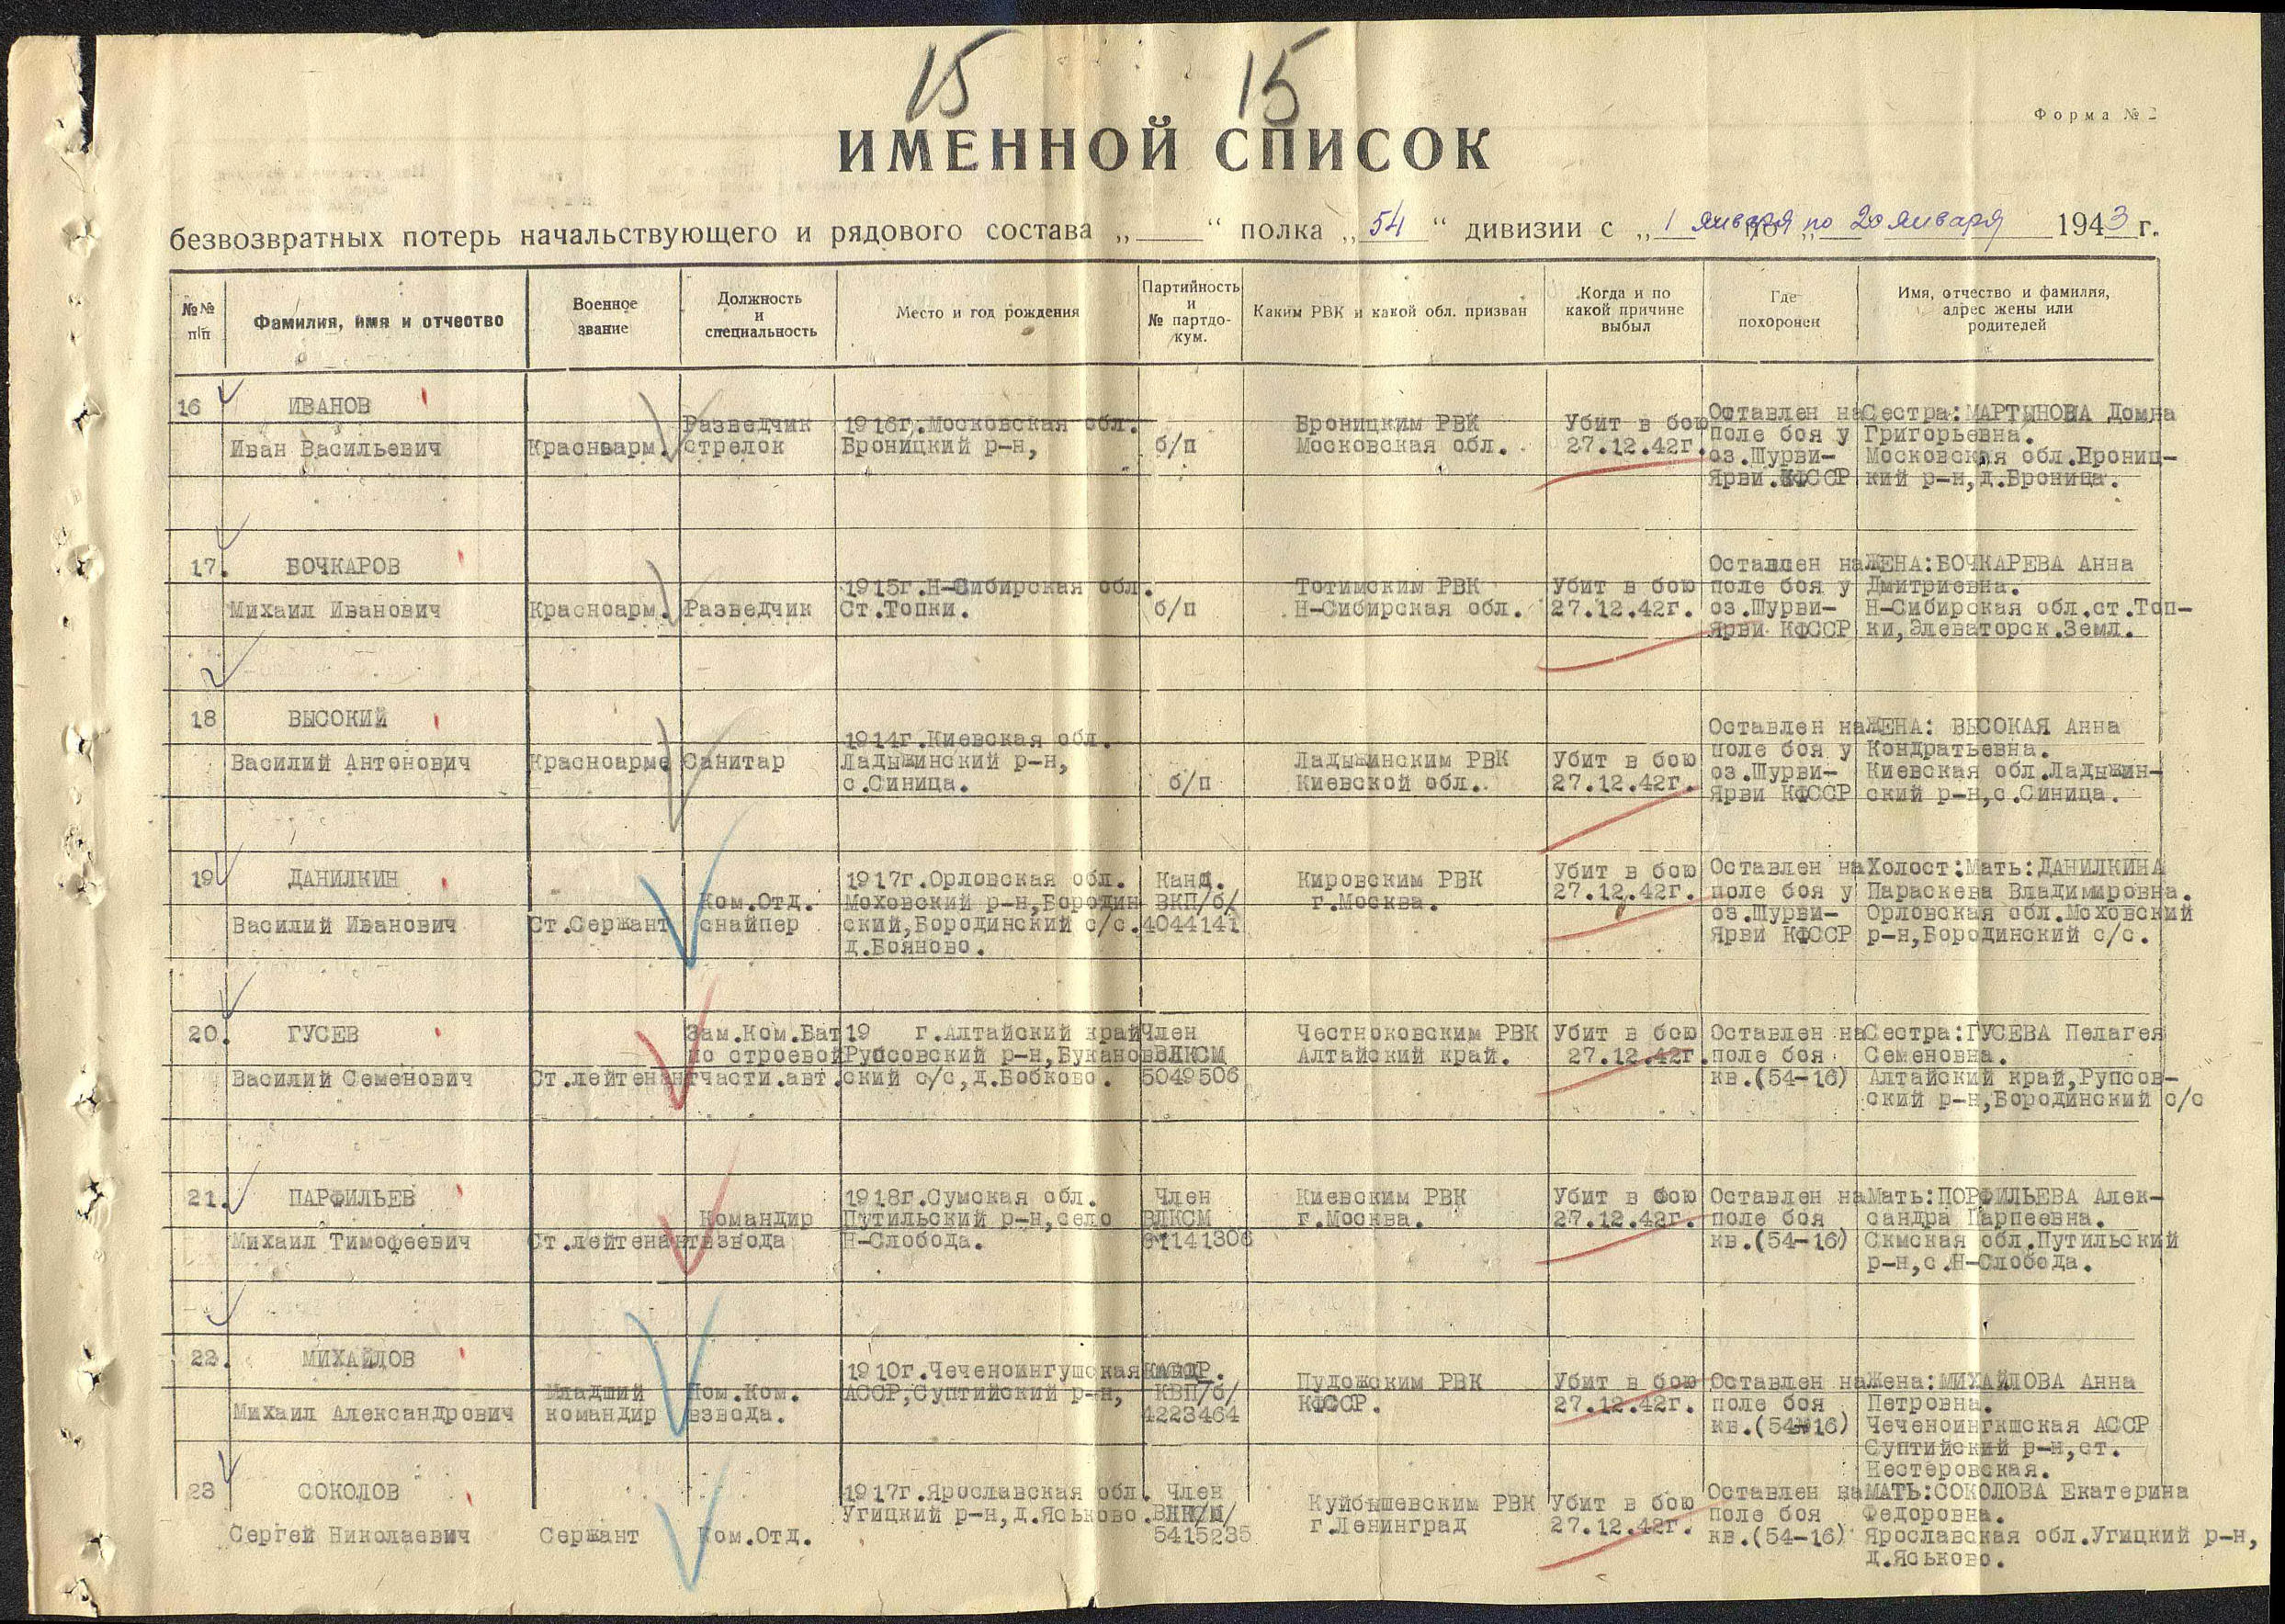 15 15
Форма №
ИМЕННОЙ СПИСОК
безвозвратных потерь начальствующего и рядового состава „ “ полка „54“ дивизии с „1 января по 20 января 1943 г.
№№ п/п
Фамилия, имя и отчество
Военное звание
Должность и специальность
Место и год рождения
Партийность и № партдокум.
Каким РВК и какой обл. призван
Когда и по какой причине выбыл
Где похоронен
Имя, отчество и фамилия, адрес жены или родителей
16 ИВАНОВ
Иван Васильевич
Красноарм.
Разведчик
стрелок
1916г.Московская обл.
Броницкий р-н,
б/п
Броницким РВК
Московская обл.
Убит в бою
27.12.42г.
Оставлен на
поле боя у
оз.Шурви-
Ярви.КФССР
Сестра:МАРТЫНОВА Домна
Григорьевна.
Московская обл.Брониц-
кий р-н,д.Броница.
17. БОЧКАРОВ
Михаил Иванович
Красноарм.
Разведчик
1915г.Н-Сибирская обл.
Ст.Топки.
б/п
Тотимским РВК
Н-Сибирская обл.
Убит в бою
27.12.42г.
Оставлен на
поле боя у
оз.Шурви-
Ярви КФССР
ЖЕНА:БОЧКАРЕВА Анна
Дмитриевна.
Н-Сибирская обл.ст.Топ-
ки,Элеваторск.Земл.
18 ВЫСОКИЙ
Василий Антонович
Красноарме
Санитар
1914г.Киевская обл.
Ладыжинский р-н,
с.Синица.
б/п
Ладыжинским РВК
Киевской обл.
Убит в бою
27.12.42г.
Оставлен на
поле боя у
оз.Шурви-
Ярви КФССР
ЖЕНА: ВЫСОКАЯ Анна
Кондратьевна.
Киевская обл.Ладыжин-
ский р-н,с.Синица.
19 ДАНИЛКИН
Василий Иванович
Ст.Сержант
Ком.Отд.
снайпер
1917г.Орловская обл.
Моховский р-н,Бородин
ский,Бородинский с/с.
д.Бояново.
Канд.
ВКП/б/
4044141
Кировским РВК
г.Москва.
Убит в бою
27.12.42г.
Оставлен на
поле боя у
оз.Шурви-
Ярви КФССР
Холост:Мать:ДАНИЛКИНА
Параскева Владимировна.
Орловская обл.Моховский
р-н,Бородинский с/с.
20. ГУСЕВ
Василий Семенович
Ст.лейтенант
Зам.Ком.Бат
по строевой
части.авт.
19 г.Алтайский край
Рупсовский р-н,Буканов
ский с/с,д.Бобково.
Член
ВЛКСМ
5049506
Честноковским РВК
Алтайский край.
Убит в бою
27.12.42г.
Оставлен на
поле боя
кв.(54-16)
Сестра:ГУСЕВА Пелагея
Семеновна.
Алтайский край,Рупсов-
ский р-н,Бородинский с/с
21. ПАРФИЛЬЕВ
Михаил Тимофеевич
Ст.лейтенант
Командир
взвода
1918г.Сумская обл.
Путильский р-н,село
Н-Слобода.
Член
ВЛКСМ
Киевским РВК
г.Москва.
Убит в бою
27.12.42г.
Оставлен на
поле боя
кв.(54-16)
Мать:ПОРФИЛЬЕВА Алек-
сандра Парпеевна.
Скмская обл.Путильский
р-н,с.Н-Слобода.
22. МИХАЙЛОВ
Михаил Александрович
Младший
командир
Пом.Ком.
взвода.
1910г.Чеченоингушская
АССР,Суптийский р-н,
КВП/б/
4223464
Пудожским РВК
КФССР.
Убит в бою
27.12.42г.
Оставлен на
поле боя
кв.(54-16)
Жена:МИХАЙЛОВА Анна
Петровна.
Чеченоингкшская АССР
Суптийский р-н,ст.
Нестеровская.
23 СОКОЛОВ
Сергей Николаевич
Сержант
Ком.Отд.
1917г.Ярославская обл.
Угицкий р-н,д.Яськово.
Член
5415235
Куйбышевским РВК
г.Ленинград
Убит в бою
27.12.42г.
Оставлен на
поле боя
кв.(54-16)
МАТЬ:СОКОЛОВА Екатерина
Федоровна.
Ярославская обл.Угицкий р-н,
д.Яськово.